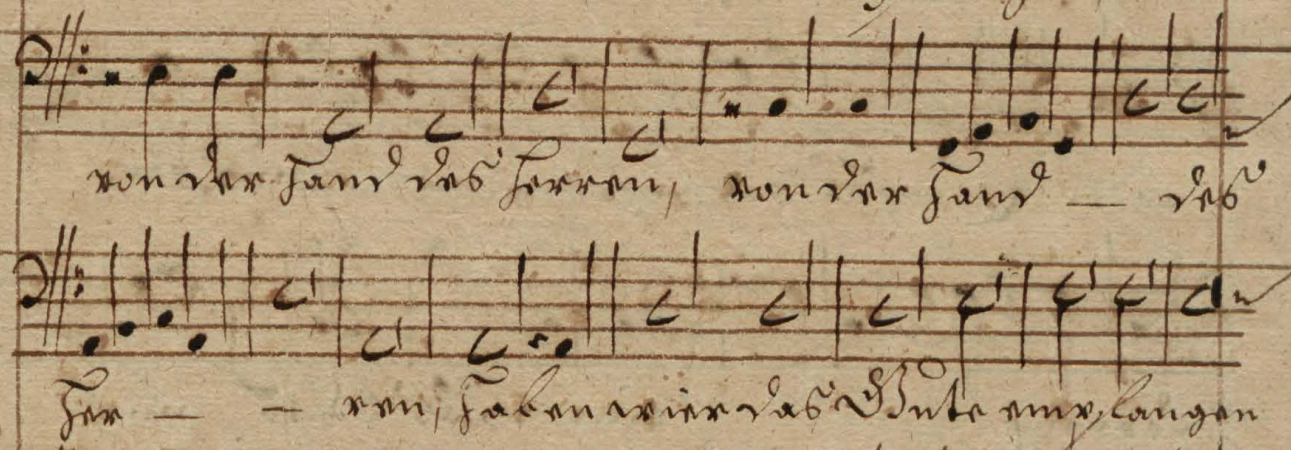 von der Hand des Herren, von der Hand — des
Her — — ren, haben wier das Gute empfangen